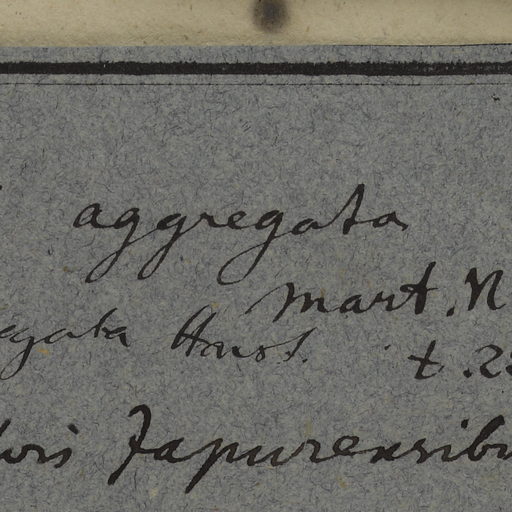 aggregata
Mart. N
egata
t. 2
Japurensibu